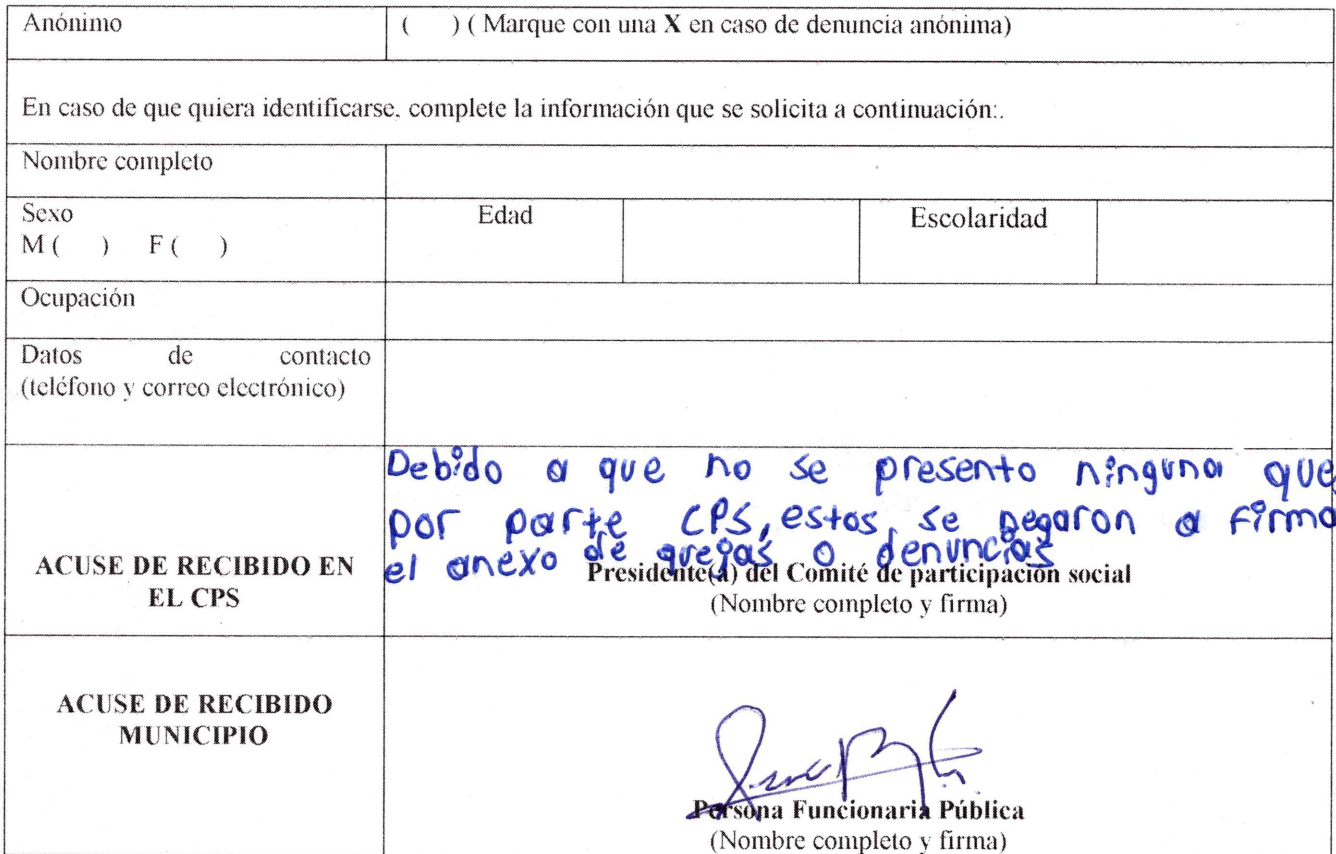 Anónimo ( ) ( Marque con una X en caso de denuncia anónima)
En caso de que quiera identificarse, complete la información que se solicita a continuación:.
Nombre completo
Sexo Edad Escolaridad
M ( ) F ( )
Ocupación
Datos de contacto
(teléfono y correo electrónico)
Debido a que no se presento ninguna que
por parte CPS, estos, se negaron a firma
el anexo de quejas o denuncias
ACUSE DE RECIBIDO EN
EL CPS
Presidente(a) del Comité de participación social
(Nombre completo y firma)
ACUSE DE RECIBIDO
MUNICIPIO
Persona Funcionaria Pública
(Nombre completo y firma)